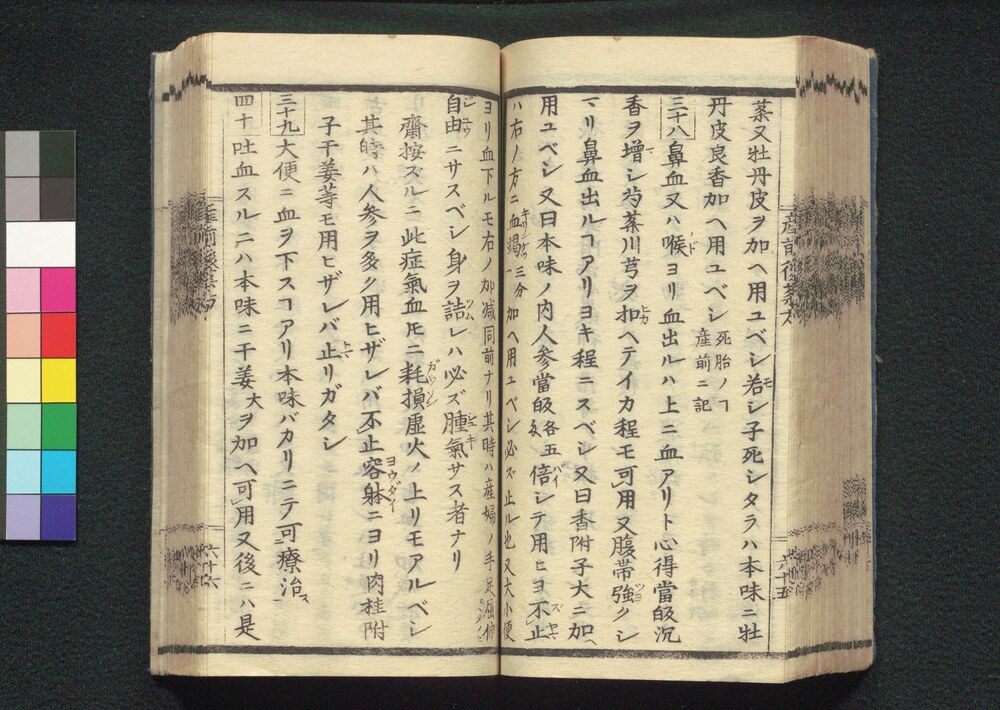 蘂又牡丹皮ヲ加ヘ用ユベシ若シ子死シタラハ本味ニ牡
丹皮良香加ヘ用ユベシ 死胎ノヿ産前ニ記
三十八 鼻血又ハ喉ヨリ血出ルハ上ニ血アリト心得當皈沉
香ヲ増シ芍薬川芎ヲ扣ヘテイカ程モ可用又腹帯強クシ
マリ鼻血出ルヿアリヨキ程ニスベシ又曰香附子大ニ加ヘ
用ユベシ又曰本味ノ内人参當皈各五倍シテ用ヒヨ不止
ハ右ノ方ニ血竭一三分加ヘ用ユベシ必ズ止ル也又大小便
ヨリ血下ルモ右ノ加減同前ナリ其時ハ産婦ノ手足屈伸
自由ニサスベシ身ヲ詰レハ必ズ腫氣サス者ナリ
齋按ズルニ此症氣血𪜈ニ耗損虚火ノ上リモアルベシ
其時ハ人参ヲ多ク用ヒザレバ不止容躰ニヨリ肉桂附
子干姜等モ用ヒザレバ止リガタシ
三十九 大便ニ血ヲ下スヿアリ本味バカリニテ可療治
四十 吐血スルニハ本味ニ干姜大ヲ加ヘ可用又後ニハ是
六十五
六十六